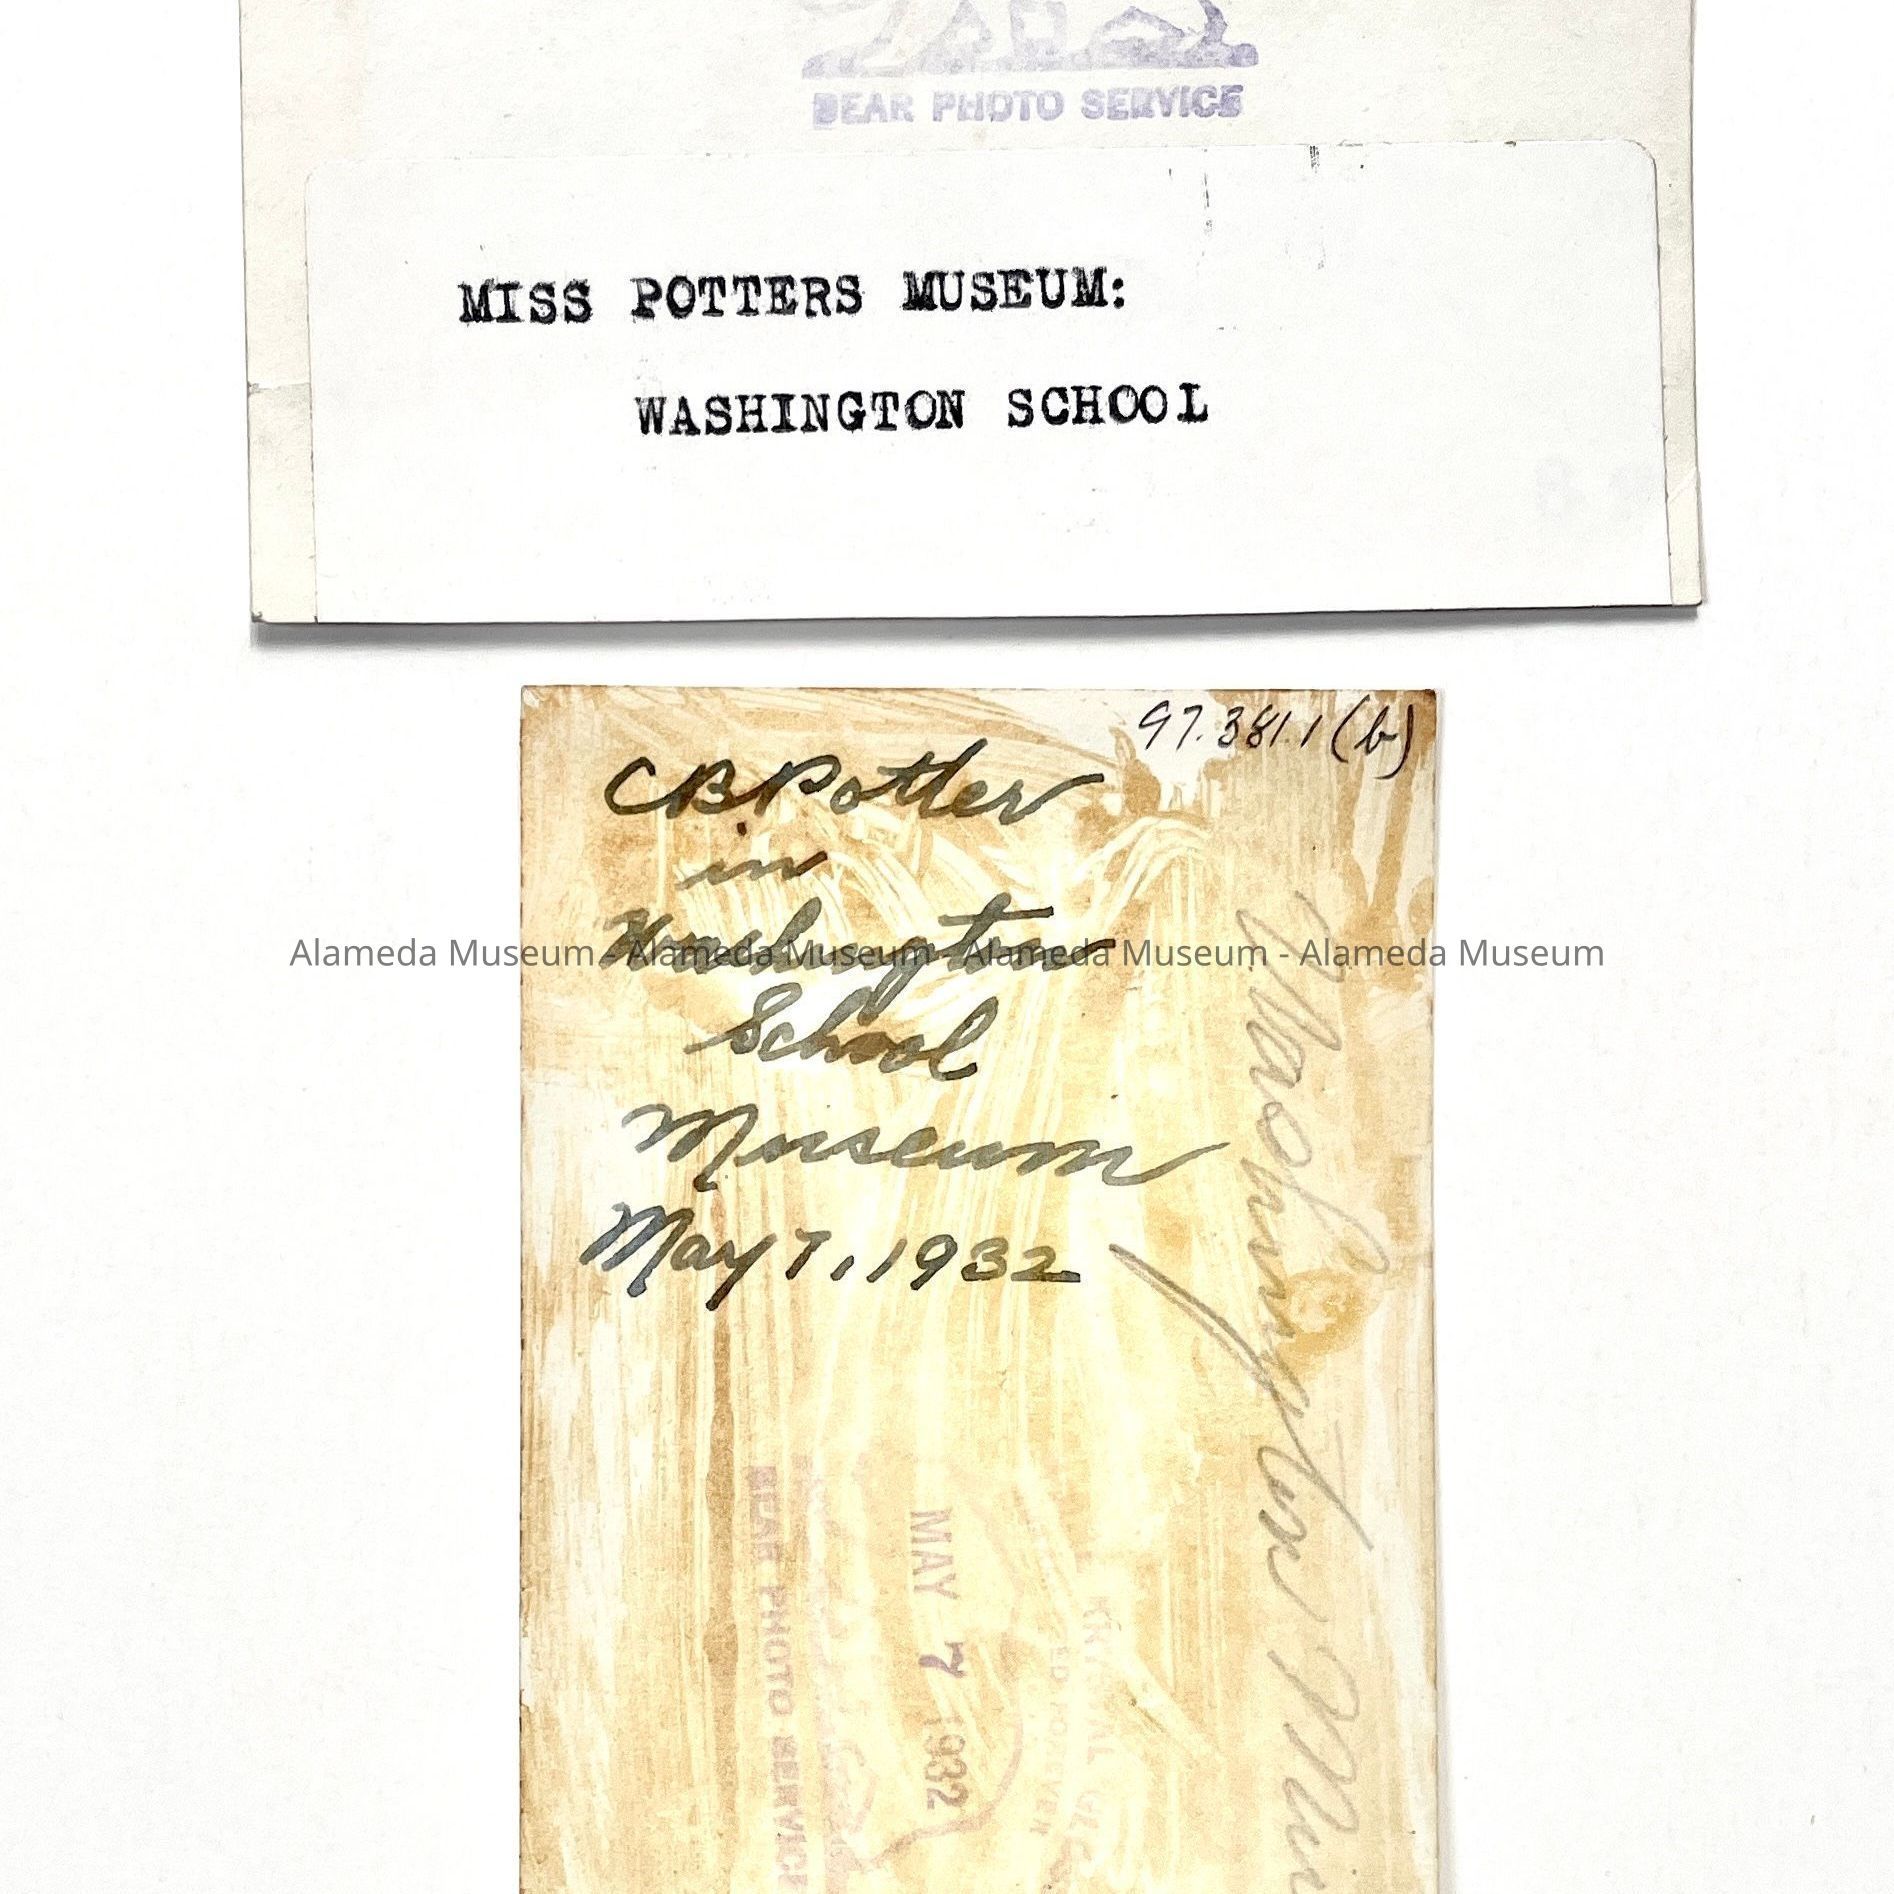 BEAR PHOTO SERVICE
MISS POTTERS MUSEUM:
WASHINGTON SCHOOL
97.381.1(b)
CB Potter
in
Washington
School
Museum
May 7, 1932
Alameda Museum - Alameda Museum - Alameda Museum - Alameda Museum
Washington
MAY 7 1932
BEAR PHOTO SERVICE